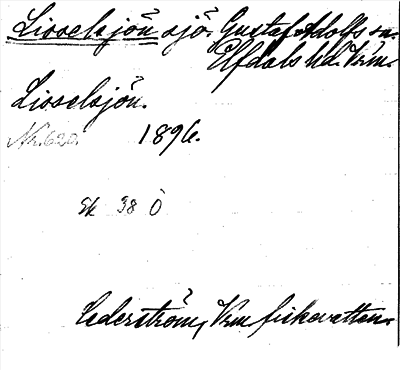 Lisselsjön sjö. Gustaf Adolfs sn.
Elfdals hd. Vrm.
Lisselsjön.
Nr. 620. 1896.
Ek 38 Ö
Cederström, Vrm fiskevatten.